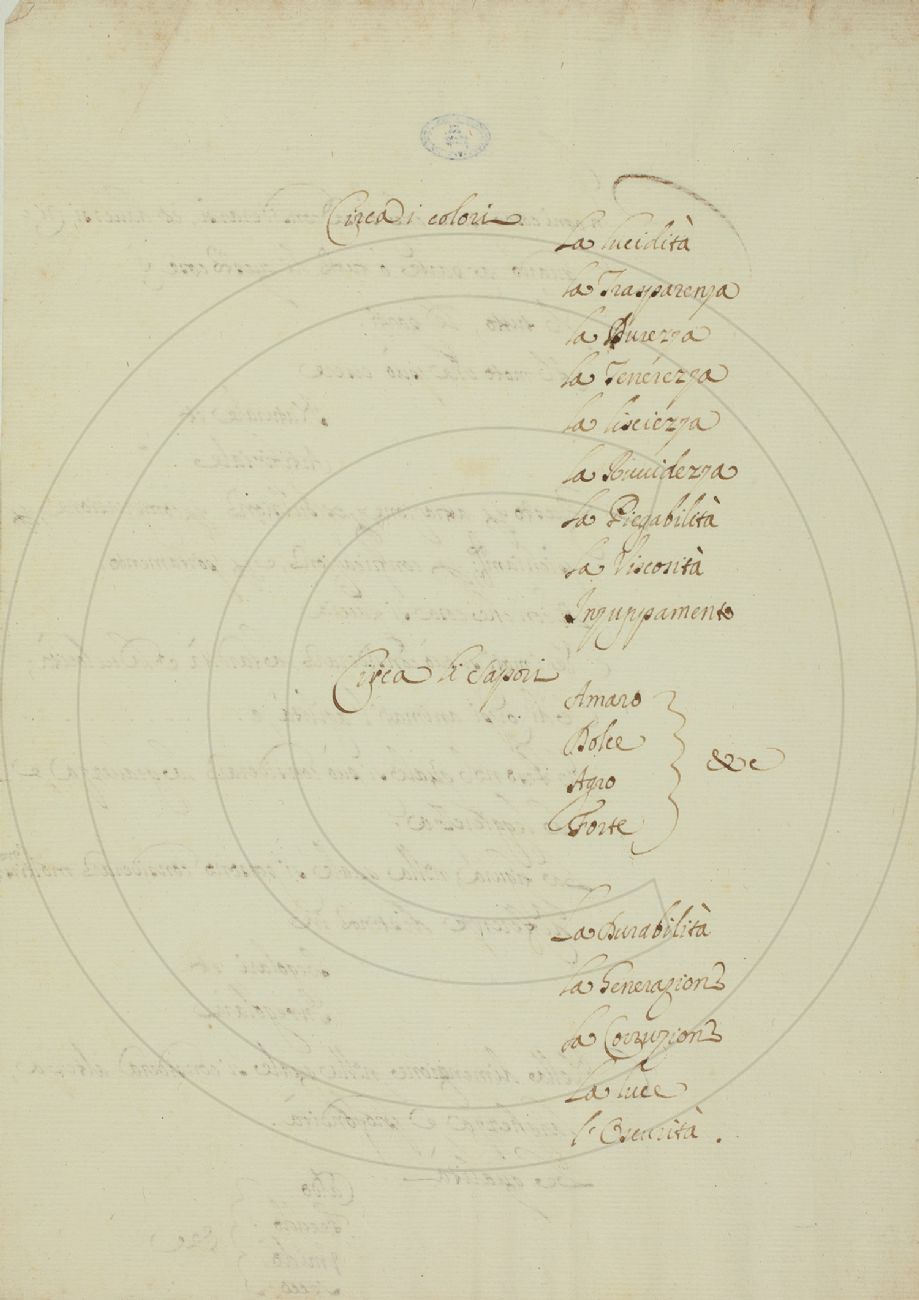 Circa i colori
La lucidità
la Trasparenza
la Durezza
la Tenerezza
la lisciezza
la Ruvidezza
la Piegabilità
la Viscosità
Inzuppamento
Circa li Sapori
Amaro
Dolce
Agro
Forte
&c
La Durabilità
la Generazione
la Corruzione
La luce
l'Oscurità .